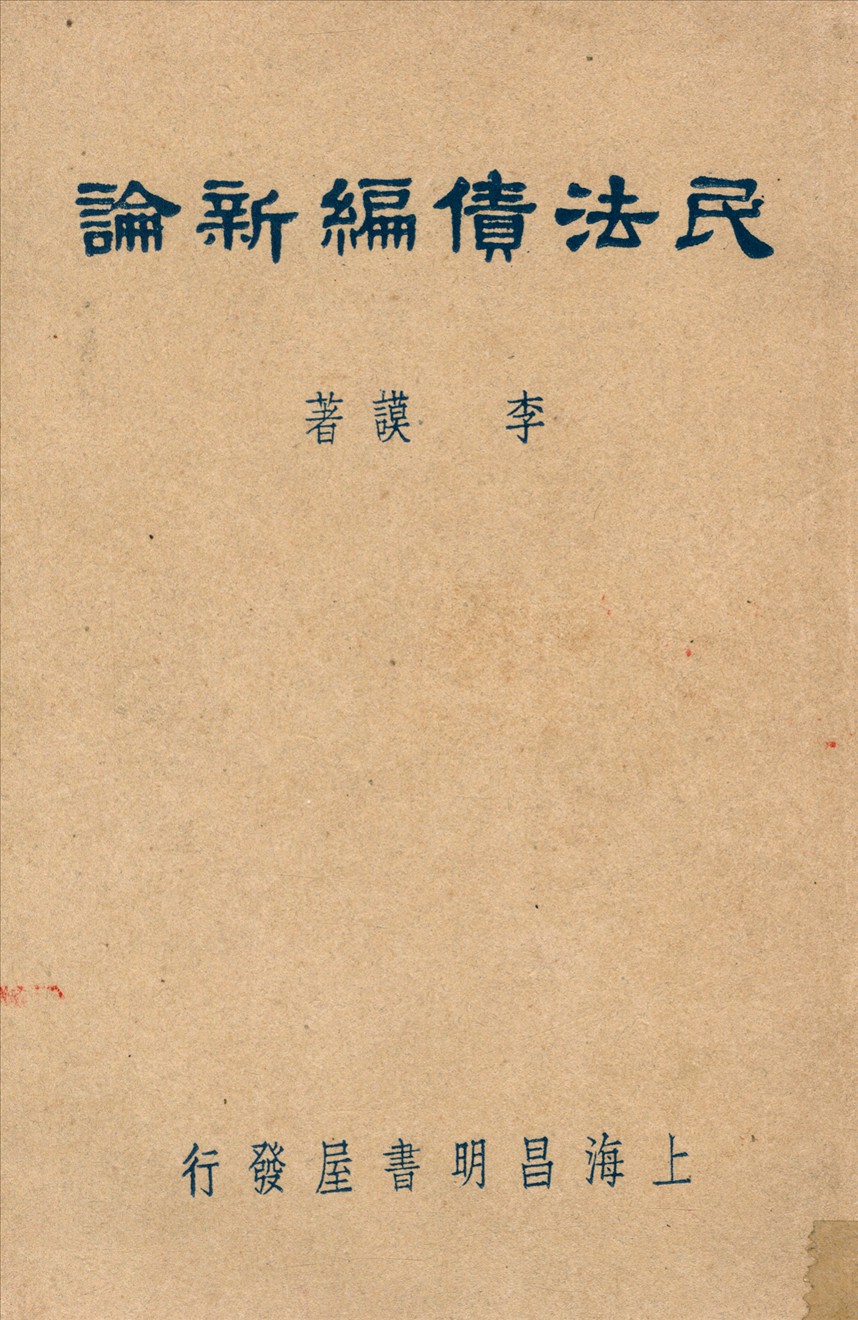 民法債編新論
李謨著
上海昌明書屋發行